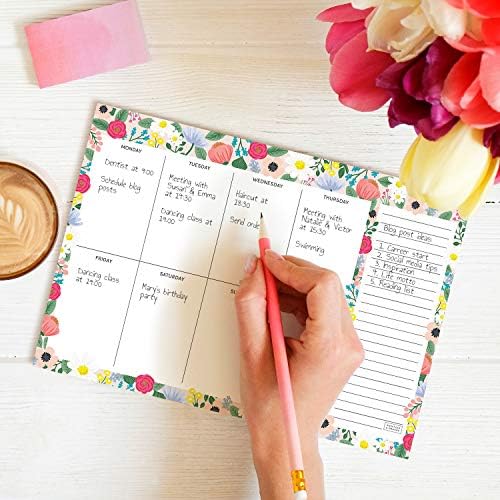 MONDAY
Dentist at 9:00
Schedule blog
posts
TUESDAY
Meeting with
Susan & Emma
at 19:30
Dancing class at
19:00
WEDNESDAY
Haircut at
18:30
Send order
THURSDAY
Meeting with
Natalie & Victor
at 15:30
Swimming
FRIDAY
Dancing class
at 19:00
SATURDAY
Mary's birthday
party
SU
Blog post ideas
1. Career start
2. Social media tips
3. Inspiration
4. Life motto
5. Reading list